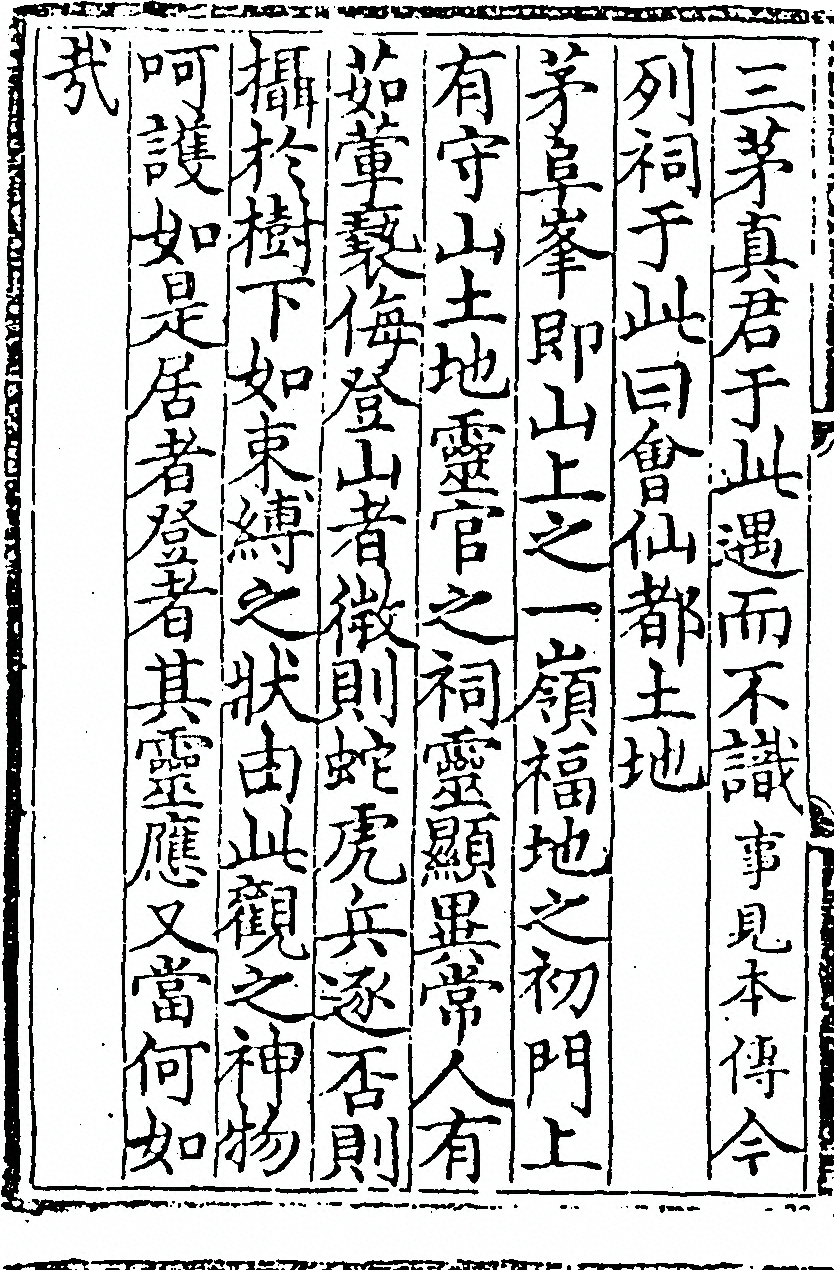 三茅真君于此遇而不識事見本傳今
列祠于此曰會仙都土地
茅阜峯即山上之一嶺福地之初門上
有守山土地靈官之祠靈顯異常人有
茹葷褻侮登山者微則蛇虎兵逐否則
攝於樹下如束縛之狀由此觀之神物
呵護如是居者登者其靈應又當何如
㢤